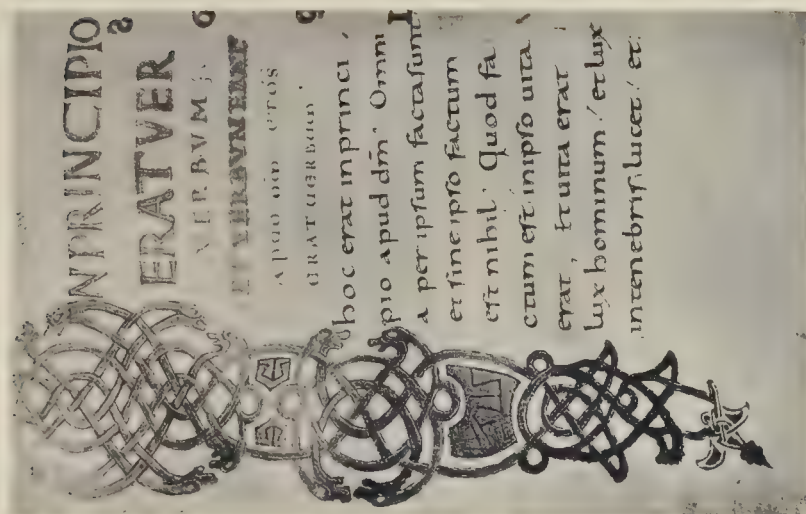 INPRINCIPIO
ERATVER
VERBVM
ET VERBVM ERAT
apud dm et ds
erat uerbum
hoc erat inprinci
pio apud dm· Omni
a per ipsum facta sunt
et sine ipso factum
est nihil· Quod fa
ctum est inipso uita
erat, Et uita erat
lux hominum / et lux
intenebris lucet / et